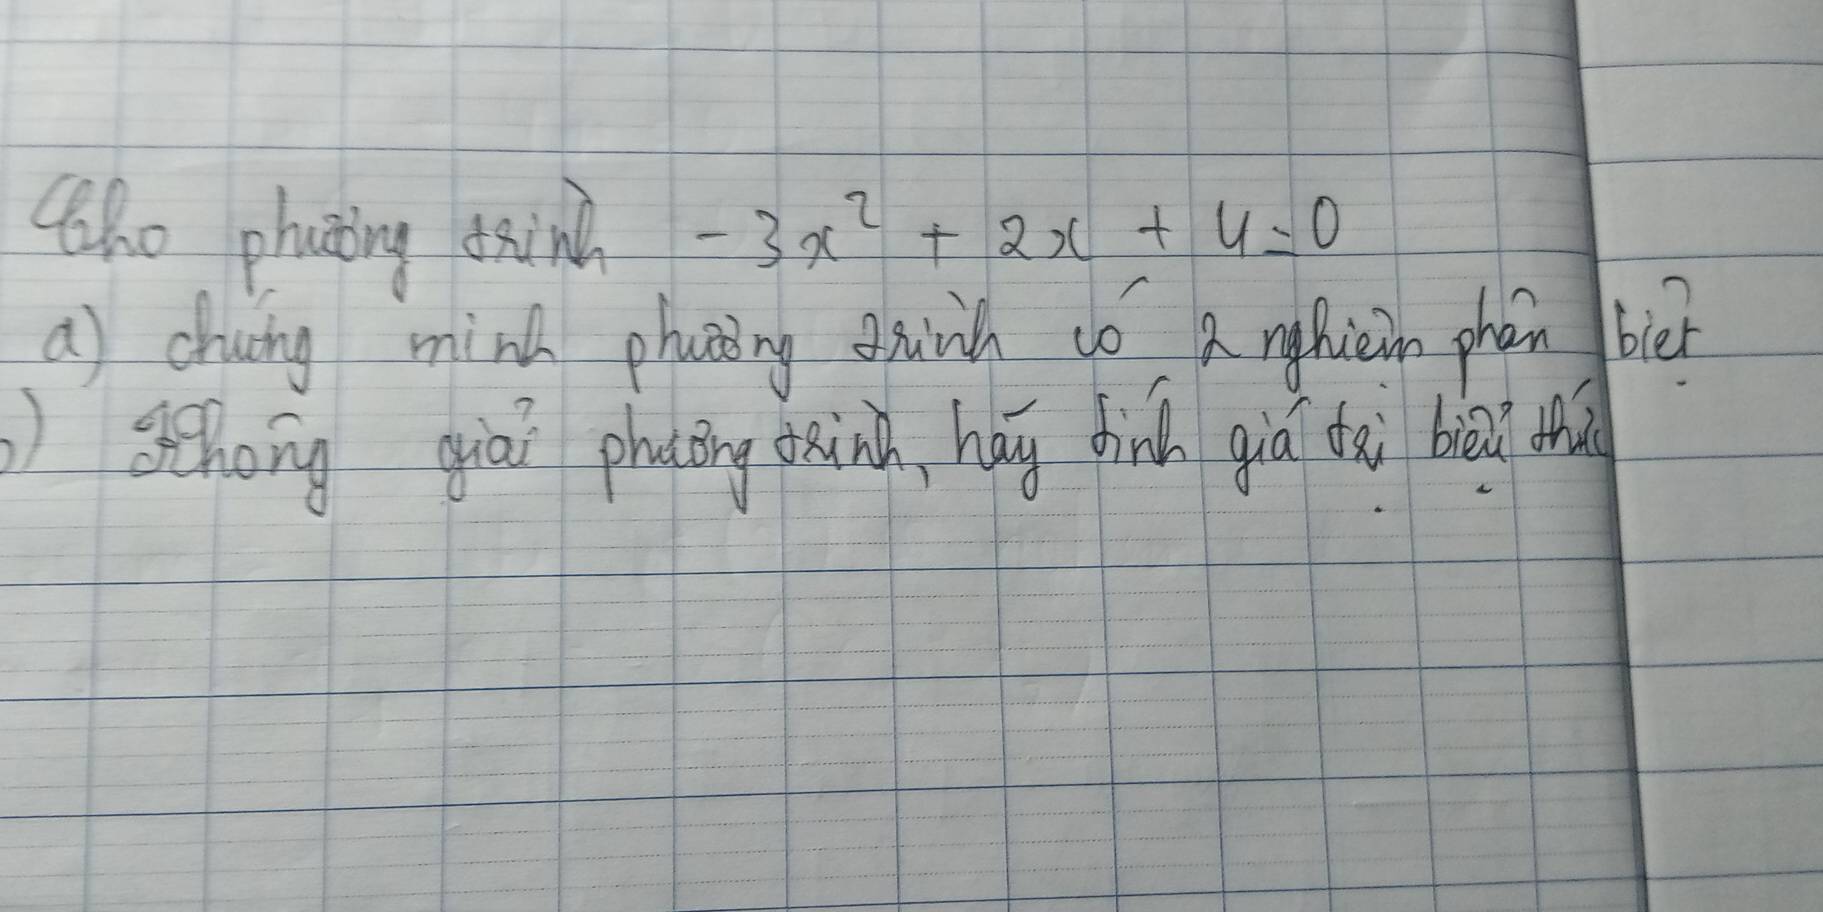 Cho phương trình -3x² + 2x + 4 = 0
a) chứng minh phương trình có 2 nghiệm phân biệt
b) Không giải phương trình, hãy tính giá trị biểu thức